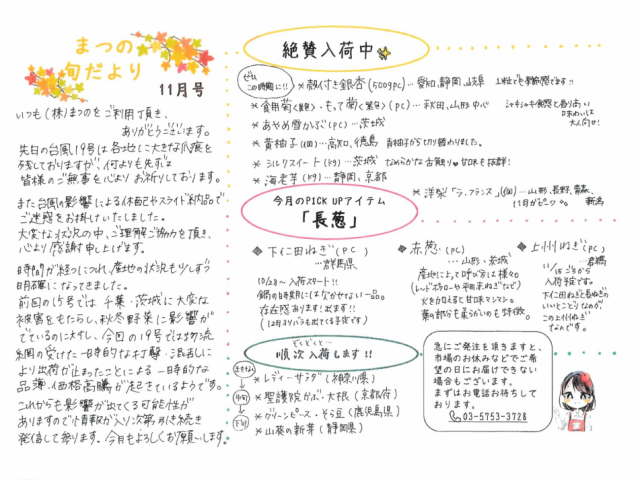 まつの
旬だより
11月号
いつも(株)まつのをご利用頂き、
ありがとうございます。
先日の台風19号は各地に大きな爪痕を
残しておりますが、何よりも先ずは
皆様のご無事を心よりお祈りしております。
また台風影響による休配やスライド納品で
ご迷惑をお掛けいたしました。
大変な状況の中、ご理解ご協力を頂き、
心より感謝申し上げます。
時間が経つにつれ、産地の状況も少しずつ
明確になってきました。
前回の15号では千葉・茨城に大変な
被害をもたらし、秋冬野菜に影響が
でているのに対し、今回の19号では物流
網の受けた一時的な打撃・混乱に
より出荷が止まったことによる一時的な
品薄・価格高騰が起きているようです。
これからも影響が出てくる可能性が
ありますので情報が入り次第引き続き
発信して参ります。今月もよろしくお願いします。
絶賛入荷中
ぜひ
この時期に!!
*殻付き銀杏(500gPC)…愛知、静岡、山形
*食用菊(黄色)・もって菊(紫色)(PC)…秋田、山形中心
シャキシャキ食感と香り高い
味わいは
大人向け!
*あやめ雪かぶ(PC)…茨城
*黄柚子(個)…高知、徳島 青柚子から切り替わりました。
*シルクスイート(kg)…茨城 なめらかな舌触り♥甘味も抜群!
*海老芋(kg)…静岡、京都
*洋梨「ラ・フランス」(個)…山形、長野、青森、
新潟
11月がピーク
今月のPICK UPアイテム
「長葱」
◆下仁田ねぎ(PC)
…群馬県
10/28~入荷スタート!!
鍋の時期には欠かせない一品。
存在感あります!出ます!!
(12月よりバラも出てくる予定です)
◆赤葱(PC)
…山形、茨城
産地によって呼び方は様々。
(レッドポロネーや平田赤ねぎなど)
火を入れると甘味でマシマシ。
葉の部分も柔らかいのも特徴。
◆上州ねぎ(PC)
…群馬
11/15ごろから
入荷予定です。
下仁田ねぎと長ねぎの
いいとこどりなのが、
この上州ねぎ
なんです。
ぞくぞくと…
順次入荷します!!
*レディーサラダ(神奈川県)
中旬
*聖護院かぶ・大根(京都府)
*グリーンピース・そら豆(鹿児島県)
下旬
*山葵の新芽(静岡県)
急にご発注を頂きますと、
市場のお休みなどでご希
望の日にお届けできない
場合もございます。
まずはお電話お待ちして
おります。
📞03-5753-3728